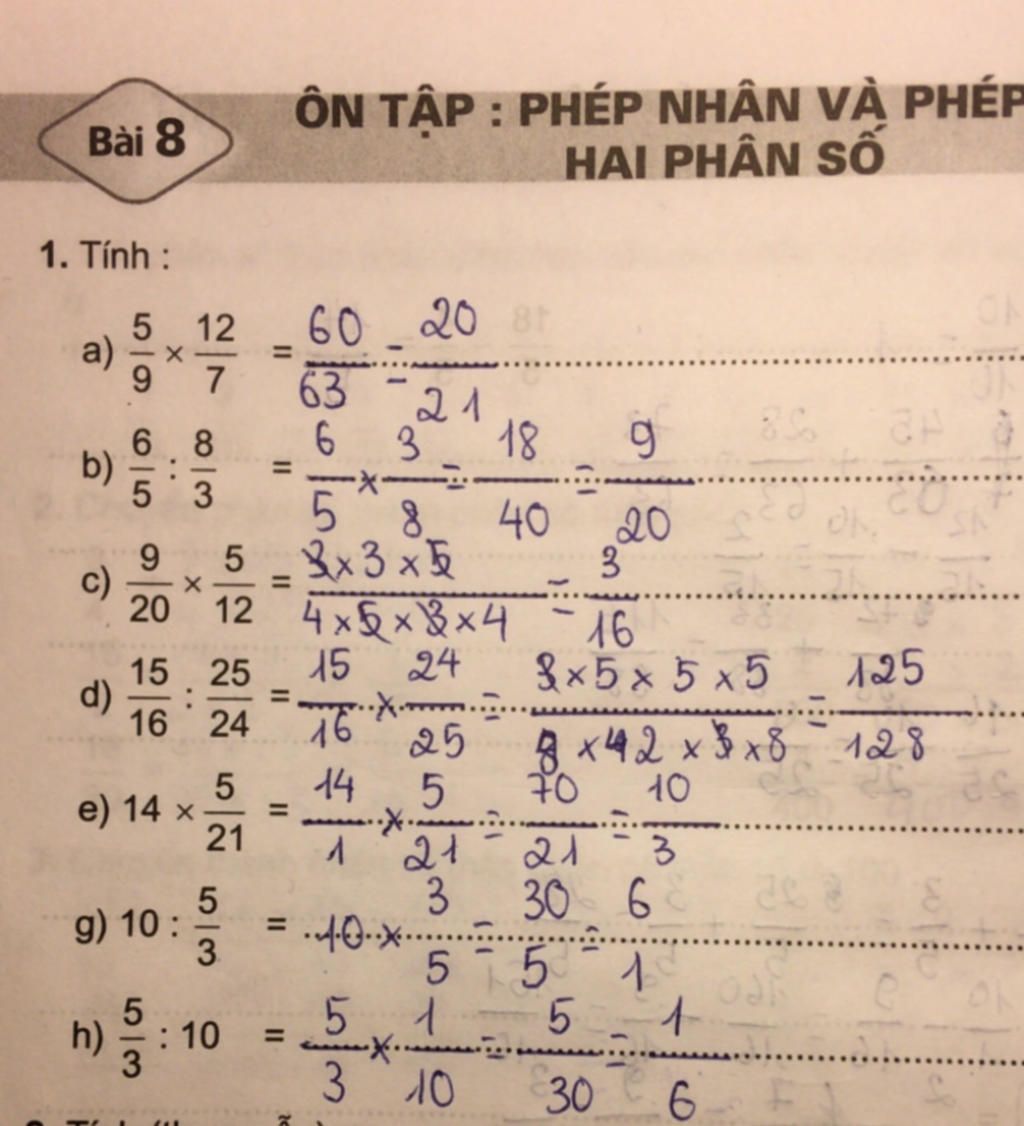 Bài 8
ÔN TẬP : PHÉP NHÂN VÀ PHÉP
HAI PHÂN SỐ
1. Tính :
a) 5/9 × 12/7 = 60/63 = 20/21
b) 6/5 : 8/3 = 6/5 × 3/8 = 18/40 = 9/20
c) 9/20 × 5/12 = 3×3×5/4×5×3×4 = 3/16
d) 15/16 : 25/24 = 15/16 × 24/25 = 3×5×5×5/8×2×3×8 = 125/128
e) 14 × 5/21 = 14/1 × 5/21 = 70/21 = 10/3
g) 10 : 5/3 = 10 × 3/5 = 30/5 = 6/1
h) 5/3 : 10 = 5/3 × 1/10 = 5/30 = 1/6